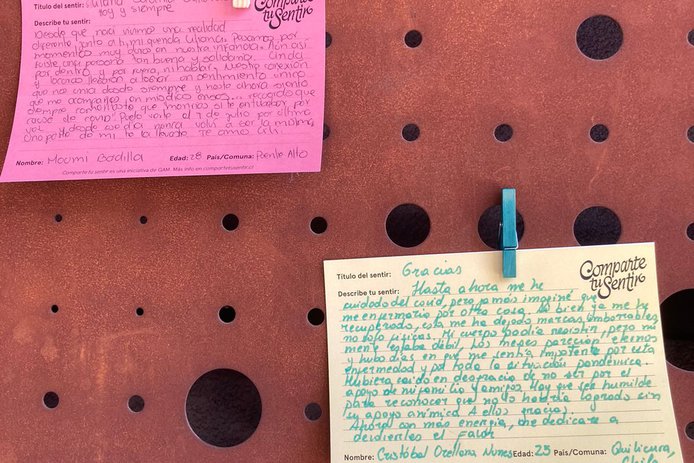 Título del sentir:
hoy y siempre
Comparte
tu Sentir
Describe tu sentir:
Desde que nací vivimos una realidad
diferente, junto a ti, mi querida Liliana. Pasamos por
momentos muy duros en nuestra infancia. Aún así
fuiste una persona tan buena y solidaria. Linda
por dentro y por fuera, inigualable. Nuestra conexión
único
que me unía desde siempre y hasta ahora siento
que me acompañas en
siempre
de julio por última
vez, desde ese día nunca volví a ser la misma,
una parte de mí te la llevaste. Te amo Lili
Nombre: Moomi Badilla Edad: 28 País/Comuna: Puente Alto
Comparte tu sentir es una iniciativa de GAM. Más info en compartetusentir.cl
Título del sentir: Gracias
Comparte
tu Sentir
Describe tu sentir: Hasta ahora me he
cuidado del covid, pero jamás imaginé que
me enfermaría por otra cosa. Si bien ya me he
recuperado, esta me ha dejado marcas imborrables,
no solo físicas. Mi cuerpo podía resistir, pero mi
mente estaba débil. Los meses parecían eternos
y hubo días en que me sentía impotente por esta
enfermedad y por toda la situación pandémica.
Hubiera caído en desgracia de no ser por el
apoyo de mi familia y amigos. Hay que ser humilde
para reconocer que no lo habría logrado sin
su apoyo anímico. A ellos gracias.
Ahora, con más energía, me dedicaré a
devolverles el favor
Nombre: Cristóbal Orellana Nunes Edad: 25 País/Comuna: Quilicura,
Chile